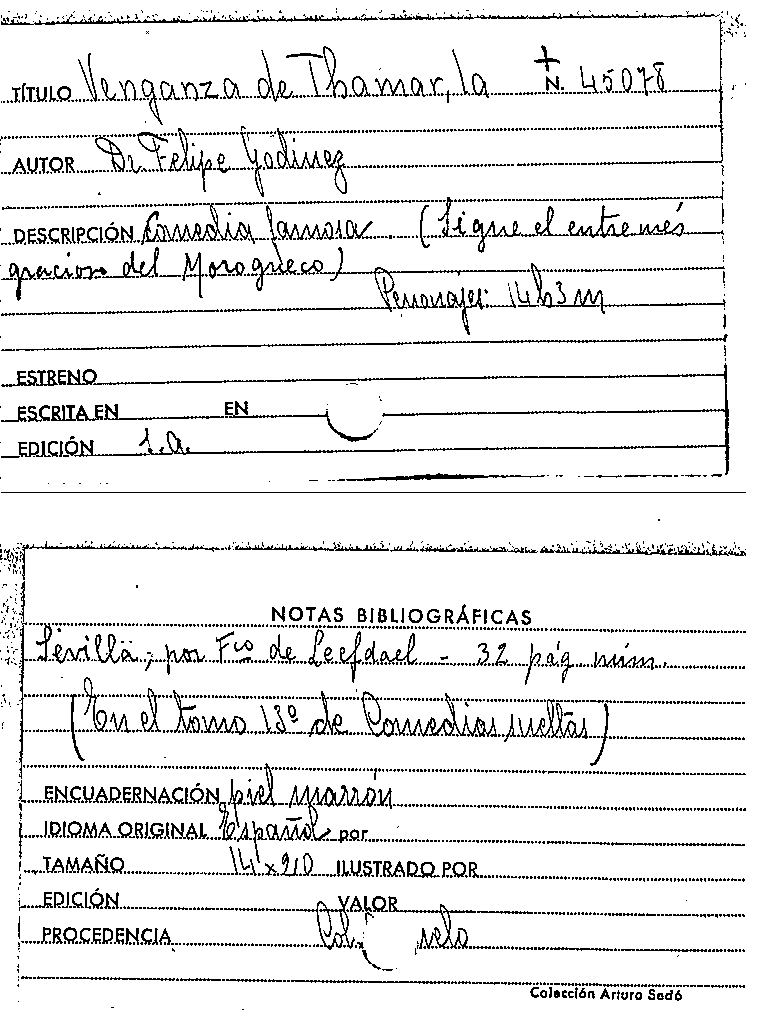 TÍTULO Venganza de Thamar, la + N. 45078
AUTOR Dr. Felipe Godinez
DESCRIPCIÓN Comedia famosa. (Sigue el entremés
gracioso del Moro grieco)
Personajes: 14 h 3 m
ESTRENO
ESCRITA EN EN
EDICIÓN s.a.
NOTAS BIBLIOGRÁFICAS
Sevilla, por Fco de Leefdael - 32 pág núm.
(En el tomo 13º de Comedias sueltas)
ENCUADERNACIÓN piel marrón
IDIOMA ORIGINAL Español por
TAMAÑO ILUSTRADO POR
EDICIÓN VALOR
PROCEDENCIA Col.
Colección Arturo Sedó